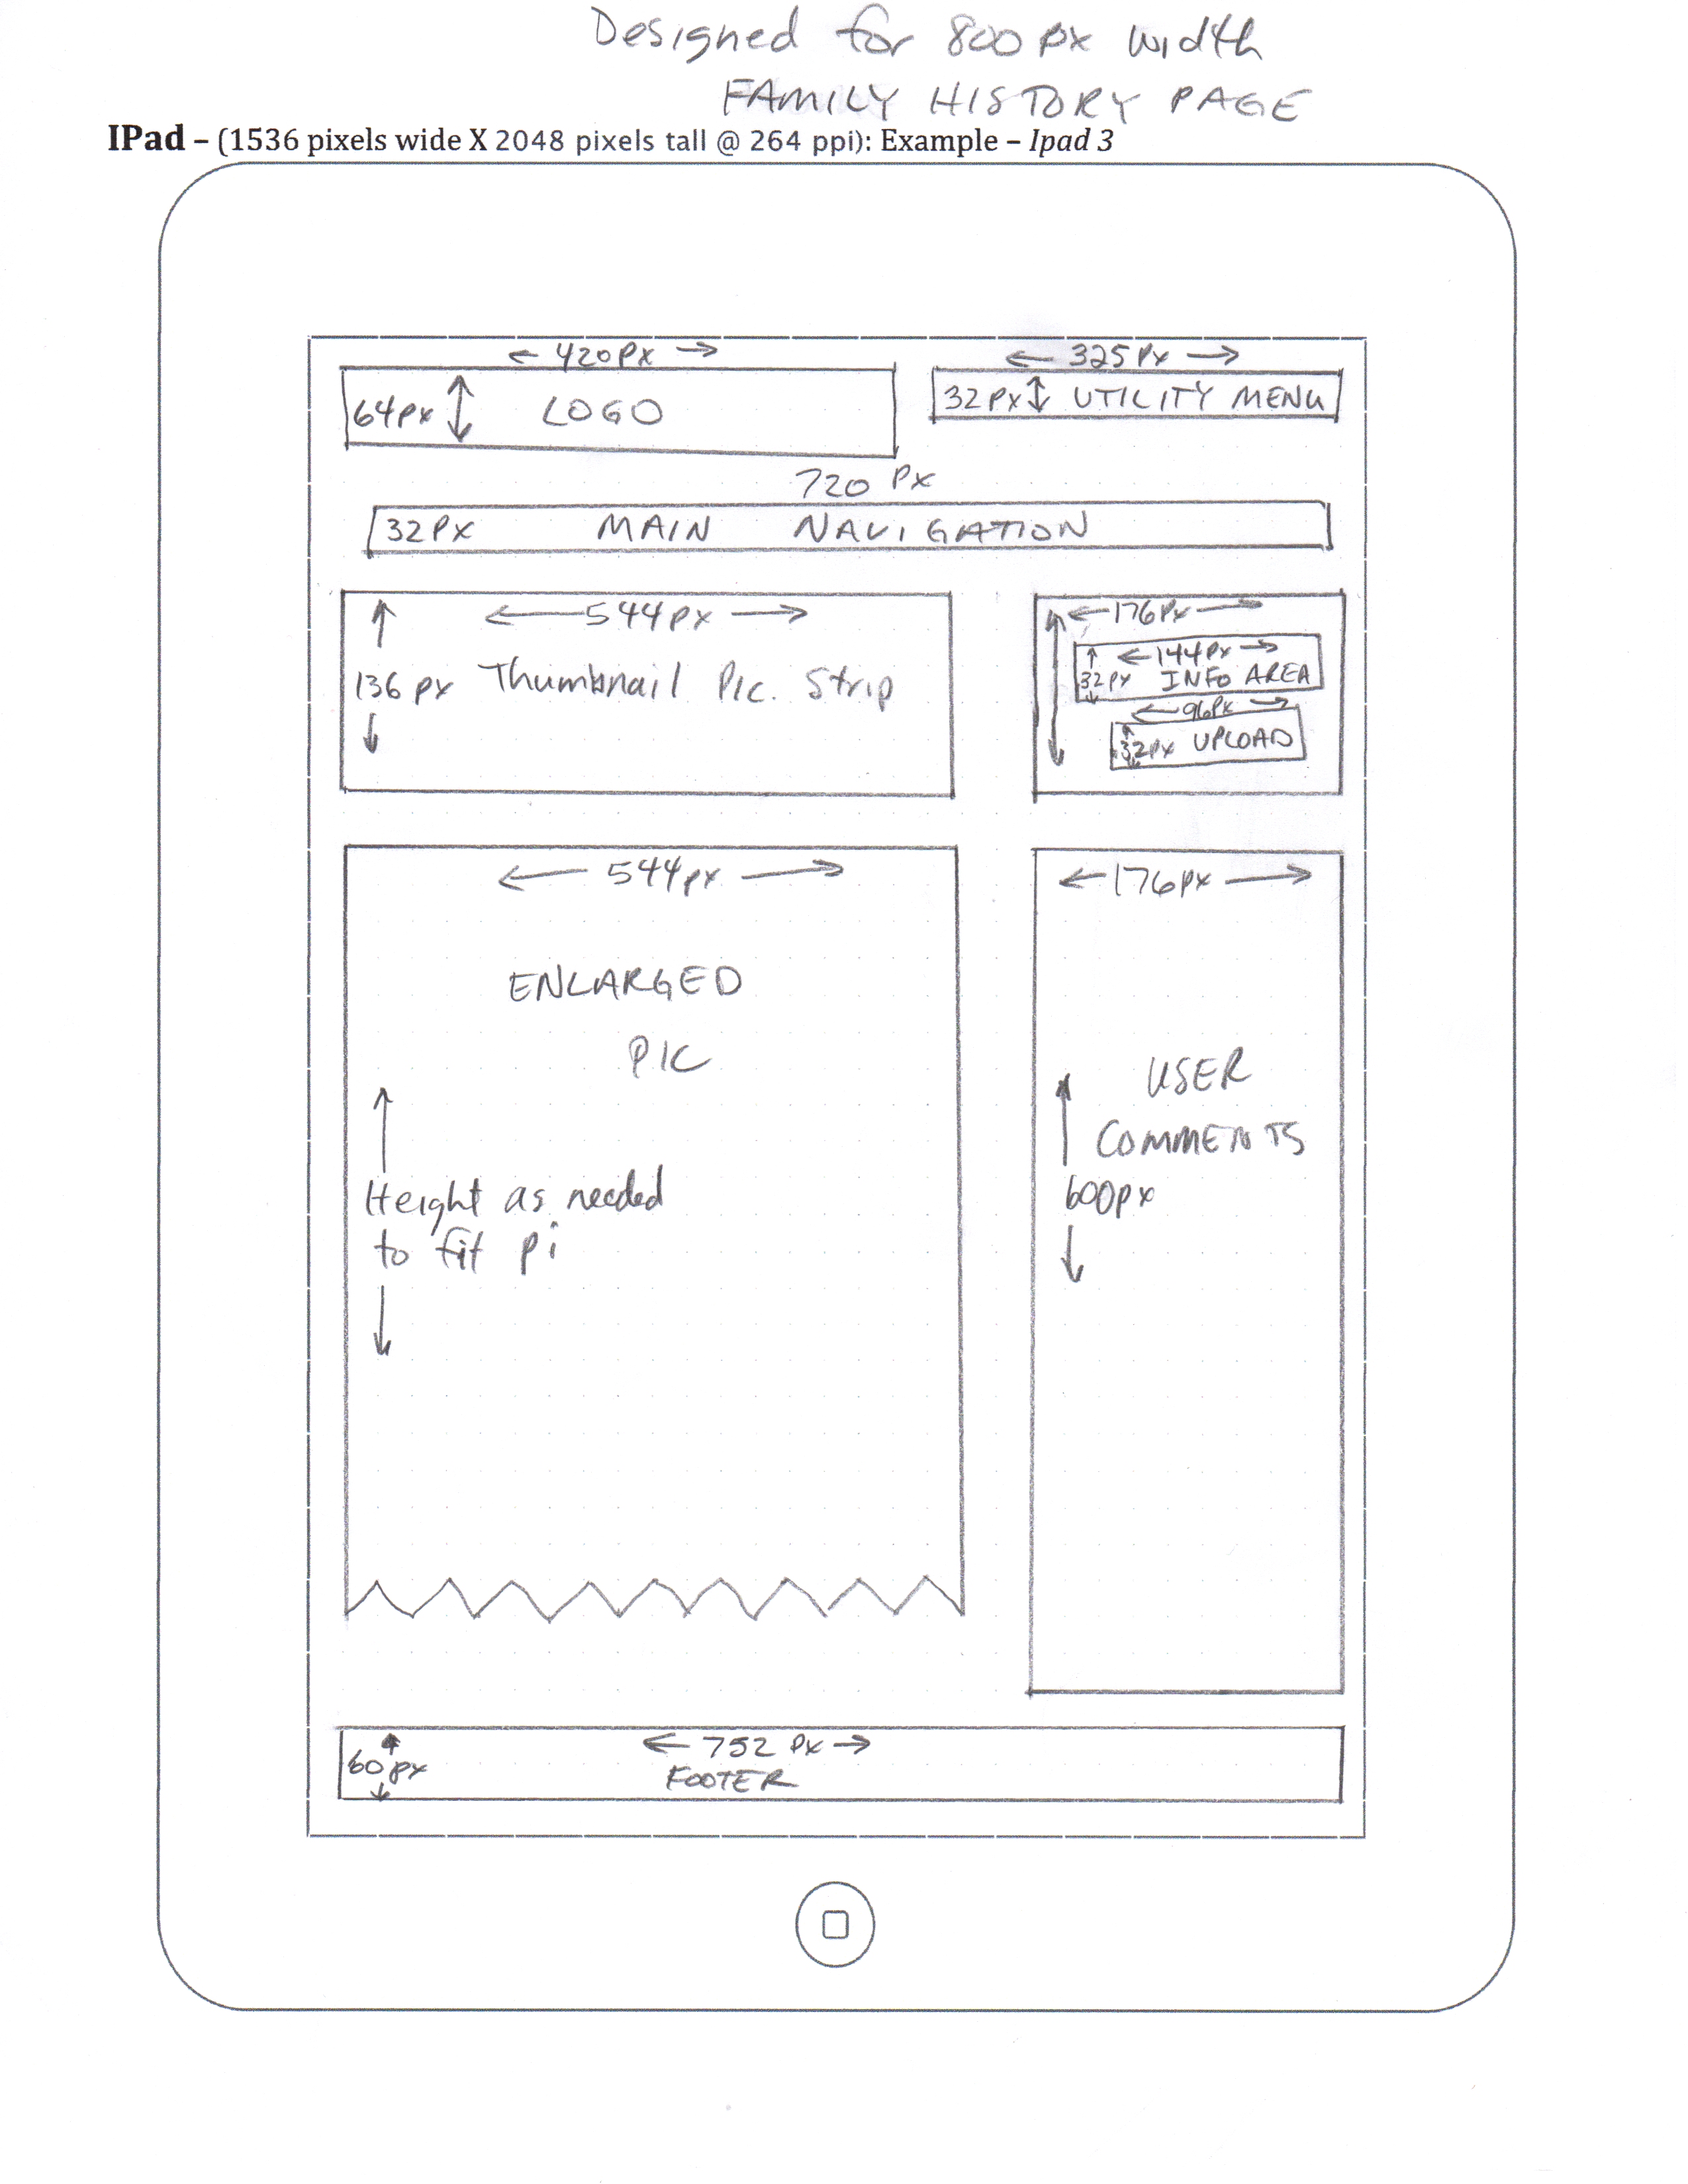 Designed for 800 px width
FAMILY HISTORY PAGE
IPad – (1536 pixels wide X 2048 pixels tall @ 264 ppi): Example – Ipad 3
420px
325 Px
64px LOGO
32px UTILITY MENU
720 Px
32Px MAIN NAVIGATION
544px
136 px Thumbnail Pic. Strip
176Px
144Px
32px INFO AREA
96Px
32px UPLOAD
544px
ENLARGED
PIC
Height as needed
to fit pi
176px
USER
COMMENTS
600px
752 Px
60px
FOOTER